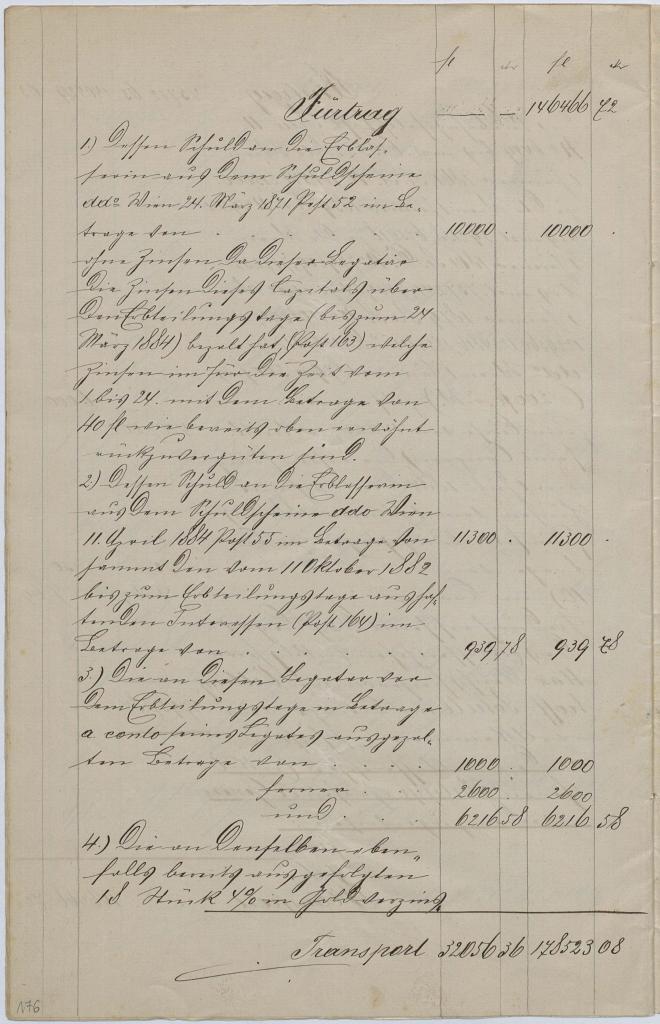 fl kr fl kr
Fürtrag — — 146466 72
1.) Dessen Schuld an die Erblas-
serin aus dem Schuldscheine
ddo Wien 24. März 1871 Post 52 im Be-
trage von . . . . . 10000 . 10000 .
ohne Zinsen da dieser Legatar
die Zinsen dieses Capitals über
den Erbteilungstage (bis zum 24
März 1884) bezalt hat, (Post 163) welche
Zinsen im für die Zeit vom
1 bis 24. mit dem Betrage von
40 fl wie bereits oben erwähnt
rückzuvergüten sind.
2.) Dessen Schuld an die Erblasserin
aus dem Schuldscheine ddo Wien
11. April 1884 Post 55 im Betrage von 11300 . 11300 .
sammt den vom 11 Oktober 1882
bis zum Erbteilungstage aushaf-
tenden Interessen (Post 164) im
Betrage von . . . . . 939 78 939 78
3.) Die an diesen Legatar vor
dem Erbteilungstage im Betrage
a conto seines Legates ausgezal-
ten Betrage von . . . . 1000 . 1000
ferner . . . 2600 . 2600
und . . . 6216 58 6216 58
4.) Die an denselben eben"
falls bereits ausgefolgten
18 Stück 4% in Gold verzins.
Transport 32056 36 178523 08
176